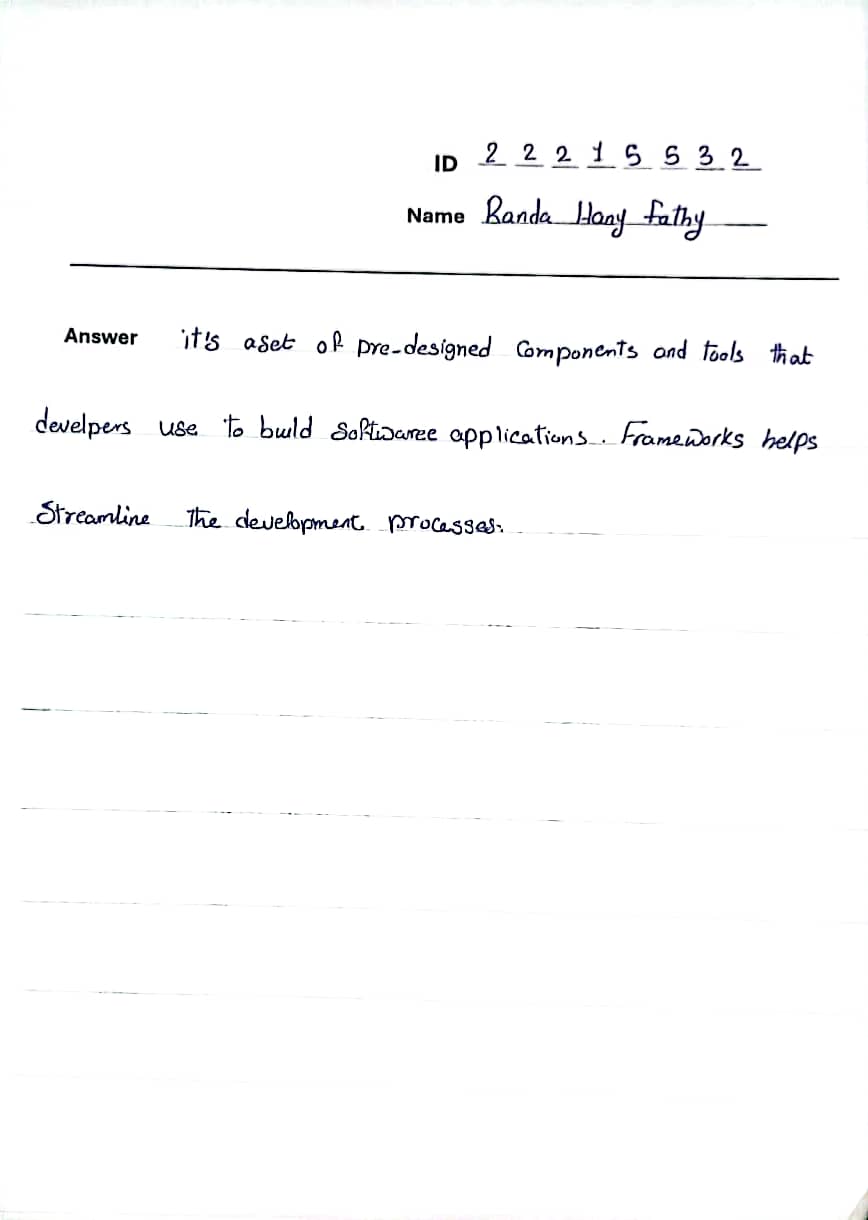 ID 22215532
Name Randa Hany fathy
Answer it's aset of pre-designed Components and tools that
develpers use to build Softwaree applications. Frameworks helps
Streamline The development processes.